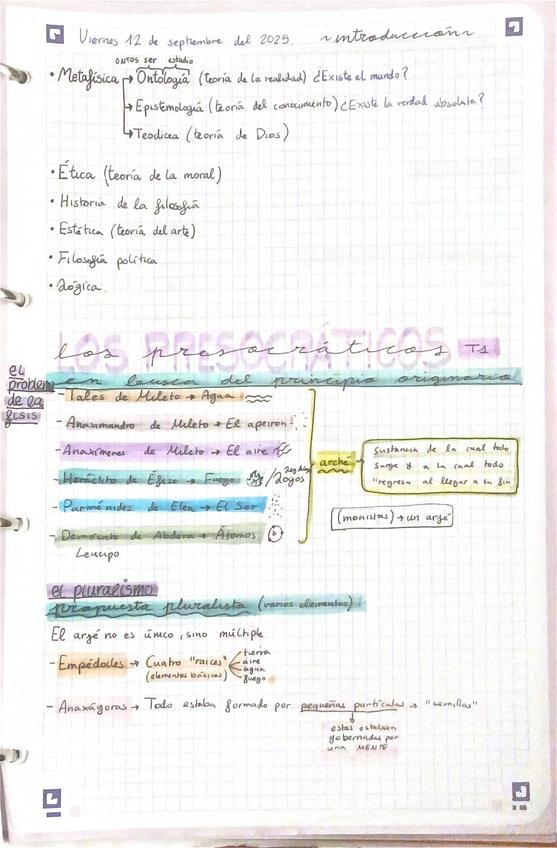 Viernes 12 de septiembre del 2025. ~introducción~
ONTOS SER estudio
• Metafísica → Ontología (teoría de la realidad) ¿Existe el mundo?
→ Epistemología (teoría del conocimiento) ¿Existe la verdad absoluta?
→ Teodicea (teoría de Dios)
• Ética (teoría de la moral)
• Historia de la filosofía
• Estética (teoría del arte)
• Filosofía política
• Lógica.
LOS PRESOCRÁTICOS
los presocráticos T1
el problema de la fisis
en busca del principio originario
- Tales de Mileto → Agua
- Anaximandro de Mileto → El apeiron
- Anaxímenes de Mileto → El aire
- Heráclito de Éfeso → Fuego / Logos
- Parménides de Elea → El Ser
- Demócrito de Abdera → Átomos
Leucipo
arché
Sustancia de la cual todo
surge y a la cual todo
regresa al llegar a su fin
(monistas) → un argé
el pluralismo
propuesta pluralista (varios elementos)
El argé no es único, sino múltiple
- Empédocles → Cuatro "raíces"
(elementos básicos)
tierra
aire
agua
fuego
- Anaxágoras → Todo estaba formado por pequeñas partículas → "semillas"
estas estaban
gobernadas por
una MENTE